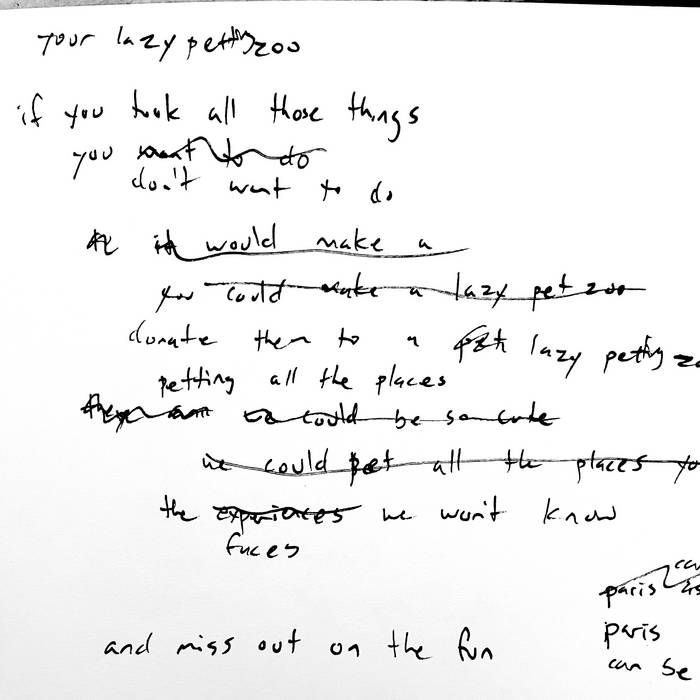 your lazy petting zoo
if you took all those things
you want to do
don't want to do
it would make a
you could make a lazy pet zoo
donate them to a lazy petting
petting all the places
we could be so cute
we could pet all the places
the experiences we won't know
faces
paris
paris
and miss out on the fun
can be